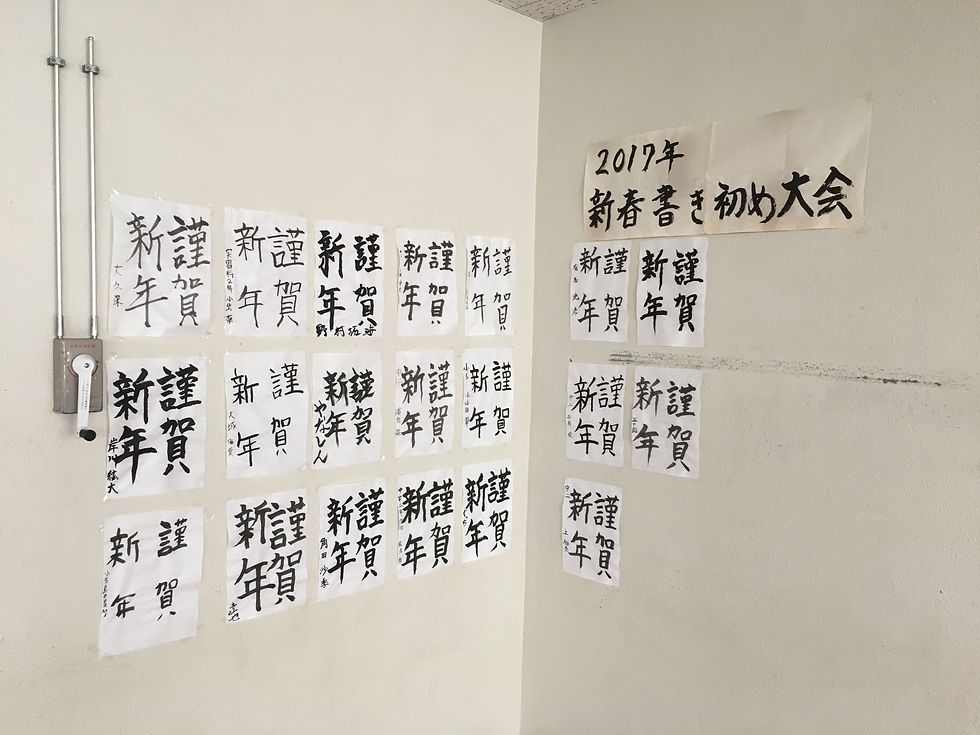 2017年
新春書き初め大会
謹賀
新年
大久保
謹賀
新年
謹賀
新年
謹賀
新年
謹賀
新年
謹賀
新年
岸川紘大
謹賀
新年
謹賀
新年
謹賀
新年
謹賀
新年
謹賀
新年
謹賀
新年
謹賀
新年
角田沙季
謹賀
新年
謹賀
新年
謹賀
新年
謹賀
新年
謹賀
新年
謹賀
新年
謹賀
新年